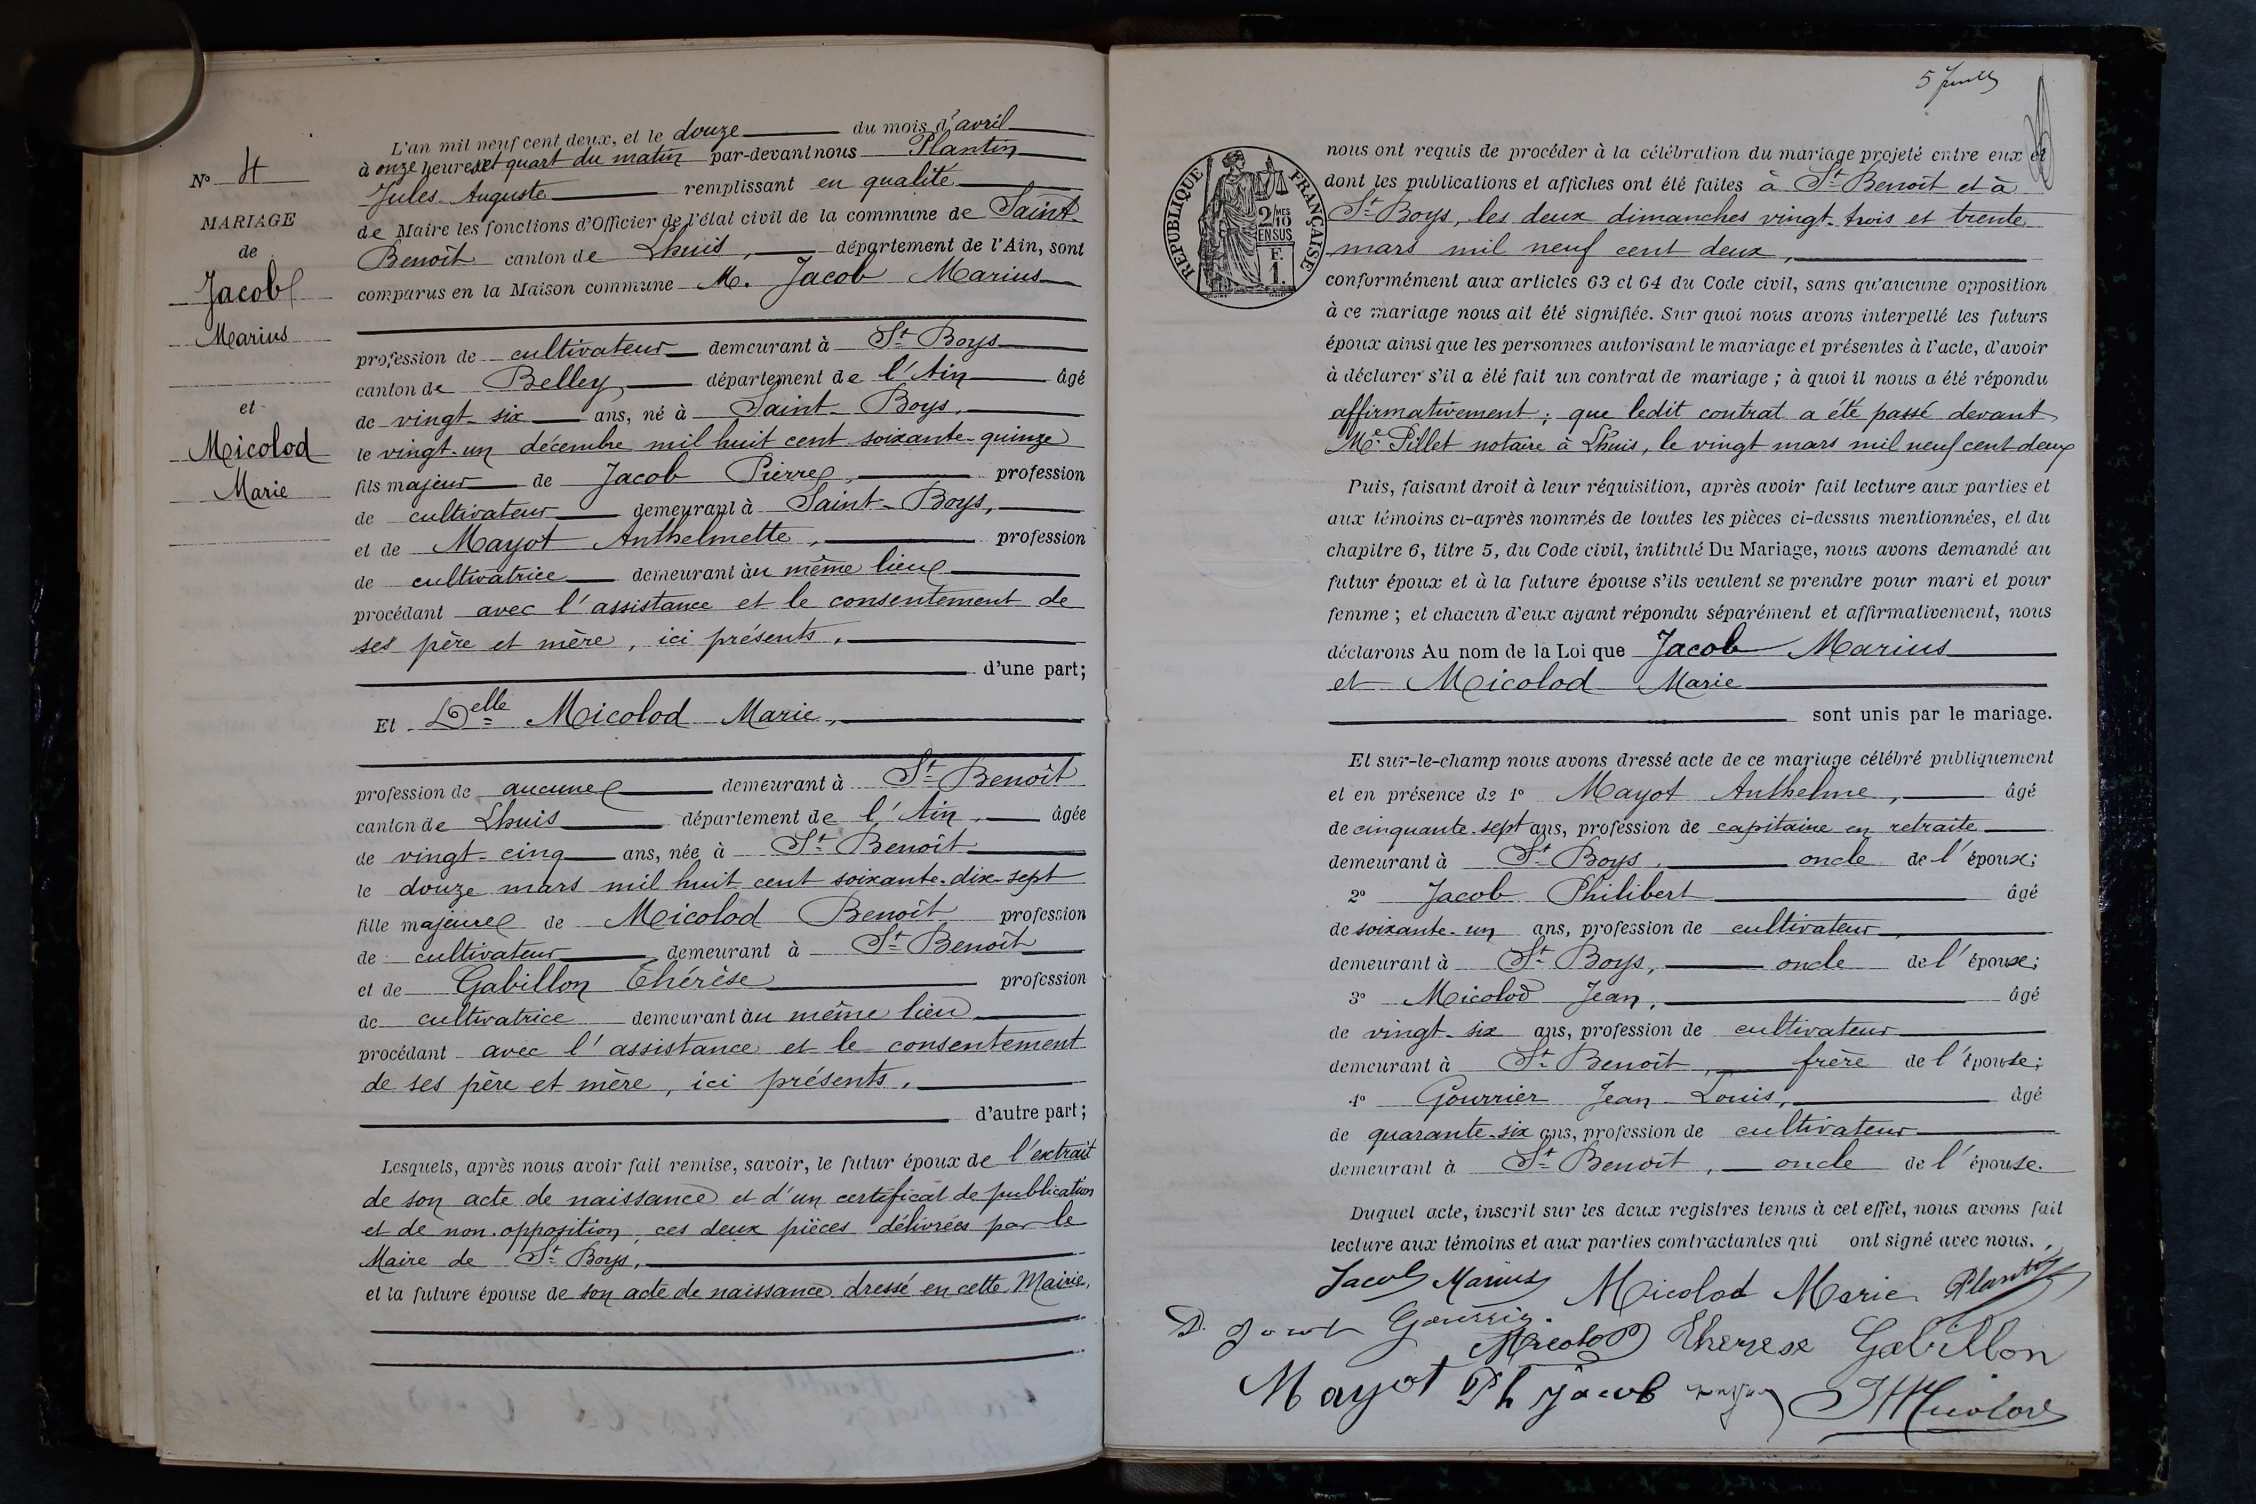 N° 4
MARIAGE
de
Jacob
Marius
et
Micolod
Marie
L'an mil neuf cent deux, et le douze du mois d'avril
à onze heures et quart du matin par-devant nous Plantin
Jules Auguste remplissant en qualité
de Maire les fonctions d'Officier de l'état civil de la commune de Saint-
Benoît canton de Lhuis, département de l'Ain, sont
comparus en la Maison commune M. Jacob Marius
profession de cultivateur demeurant à St Boys
canton de Belley, département de l'Ain âgé
de vingt-six ans, né à Saint-Boys,
le vingt-un décembre mil huit cent soixante-quinze
fils majeur de Jacob Pierre, profession
de cultivateur demeurant à Saint-Boys,
et de Mayot Anthelmette, profession
de cultivatrice demeurant au même lieu
procédant avec l'assistance et le consentement de
ses père et mère, ici présents,
d'une part;
Et Delle Micolod Marie,
profession de aucune demeurant à St Benoît
canton de Lhuis département de l'Ain, âgée
de vingt-cinq ans, née à St Benoît
le douze mars mil huit cent soixante-dix-sept
fille majeure de Micolod Benoît profession
de cultivateur demeurant à St Benoît
et de Gabillon Thérèse profession
de cultivatrice demeurant au même lieu
procédant avec l'assistance et le consentement
de ses père et mère, ici présents,
d'autre part;
Lesquels, après nous avoir fait remise, savoir, le futur époux de l'extrait
de son acte de naissance et d'un certificat de publication
et de non-opposition, ces deux pièces délivrées par le
Maire de St Boys,
et la future épouse de son acte de naissance dressé en cette Mairie,
RÉPUBLIQUE FRANÇAISE
2/10MES
EN SUS
F.
1.
nous ont requis de procéder à la célébration du mariage projeté entre eux et
dont les publications et affiches ont été faites à St Benoît et à
St Boys, les deux dimanches vingt-trois et trente
mars mil neuf cent deux,
conformément aux articles 63 et 64 du Code civil, sans qu'aucune opposition
à ce mariage nous ait été signifiée. Sur quoi nous avons interpellé les futurs
époux ainsi que les personnes autorisant le mariage et présentes à l'acte, d'avoir
à déclarer s'il a été fait un contrat de mariage ; à quoi il nous a été répondu
affirmativement ; que ledit contrat a été passé devant
Me Pillet notaire à Lhuis, le vingt mars mil neuf cent deux
Puis, faisant droit à leur réquisition, après avoir fait lecture aux parties et
aux témoins ci-après nommés de toutes les pièces ci-dessus mentionnées, et du
chapitre 6, titre 5, du Code civil, intitulé Du Mariage, nous avons demandé au
futur époux et à la future épouse s'ils veulent se prendre pour mari et pour
femme ; et chacun d'eux ayant répondu séparément et affirmativement, nous
déclarons Au nom de la Loi que Jacob Marius
et Micolod Marie
sont unis par le mariage.
Et sur-le-champ nous avons dressé acte de ce mariage célébré publiquement
et en présence de 1° Mayot Anthelme, âgé
de cinquante-sept ans, profession de capitaine en retraite
demeurant à St Boys, oncle de l'époux;
2° Jacob Philibert âgé
de soixante-un ans, profession de cultivateur,
demeurant à St Boys, oncle de l'époux;
3° Micolod Jean, âgé
de vingt-six ans, profession de cultivateur
demeurant à St Benoît, frère de l'épouse;
4° Gourrier Jean-Louis, âgé
de quarante-six ans, profession de cultivateur
demeurant à St Benoît, oncle de l'épouse.
Duquel acte, inscrit sur les deux registres tenus à cet effet, nous avons fait
lecture aux témoins et aux parties contractantes qui ont signé avec nous.
Jacob Marius Micolod Marie Plantin
P. Jacob Gourrier
Micolod Therese Gabillon
Mayot Ph Jacob Micolod